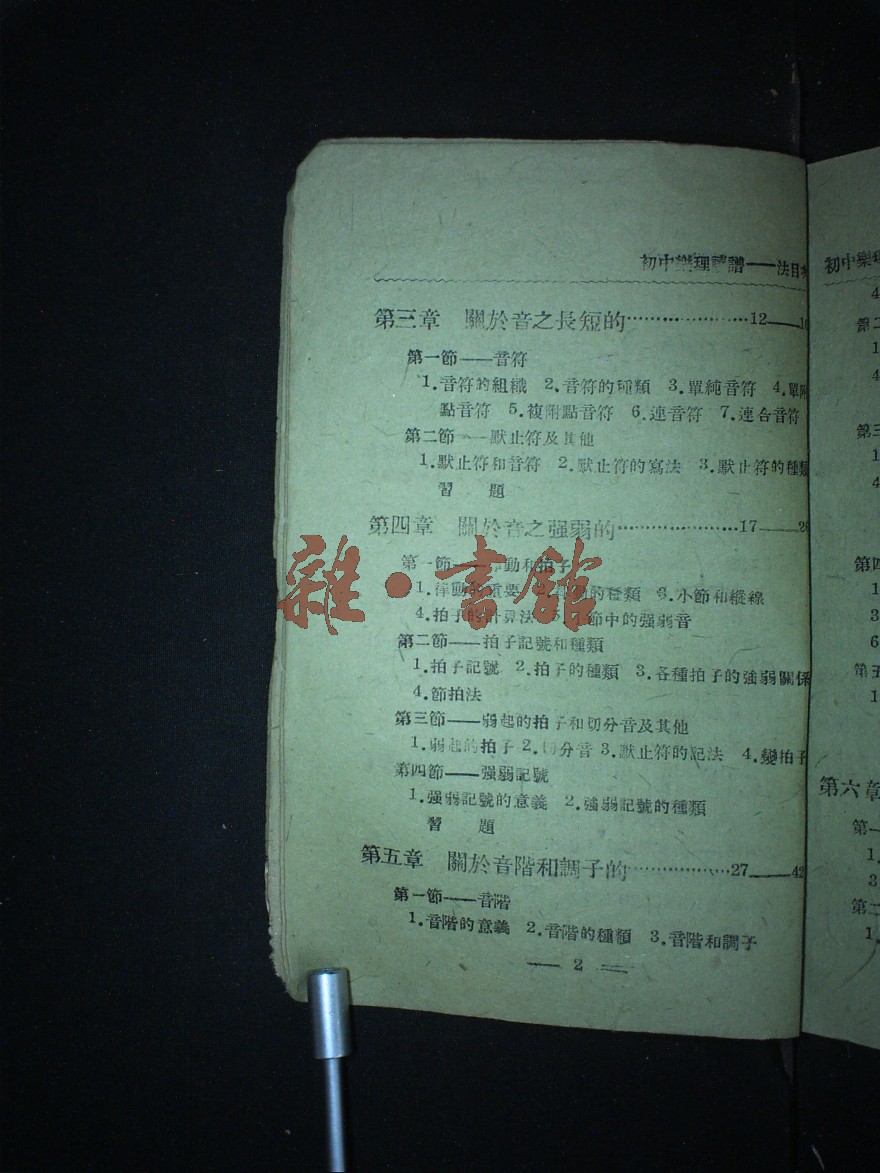 初中樂理讀譜——法目
第三章 關於音之長短的…………………12——1
第一節——音符
1.音符的組織 2.音符的種類 3.單純音符 4.單附
點音符 5.複附點音符 6.連音符 7.連合音符
第二節——默止符及其他
1.默止符和音符 2.默止符的寫法 3.默止符的種類
習 題
第四章 關於音之强弱的…………………17——2
第一節——動和拍子
1.律動的重要 2.的種類 3.小節和縱線
4.拍子的計算法 5.小節中的强弱音
第二節——拍子記號和種類
1.拍子記號 2.拍子的種類 3.各種拍子的強弱關係
4.節拍法
第三節——弱起的拍子和切分音及其他
1.弱起的拍子 2.切分音 3.默止符的記法 4.變拍子
第四節——强弱記號
1.强弱記號的意義 2.強弱記號的種類
習 題
第五章 關於音階和調子的………………27——42
第一節——音階
1.音階的意義 2.音階的種類 3.音階和調子
—— 2 ——
雜·書館
初中樂理
4
第二
1
4
第三
1
4
第四
1
3
6
第五
1
第六章
第一
1.
3
第二
1